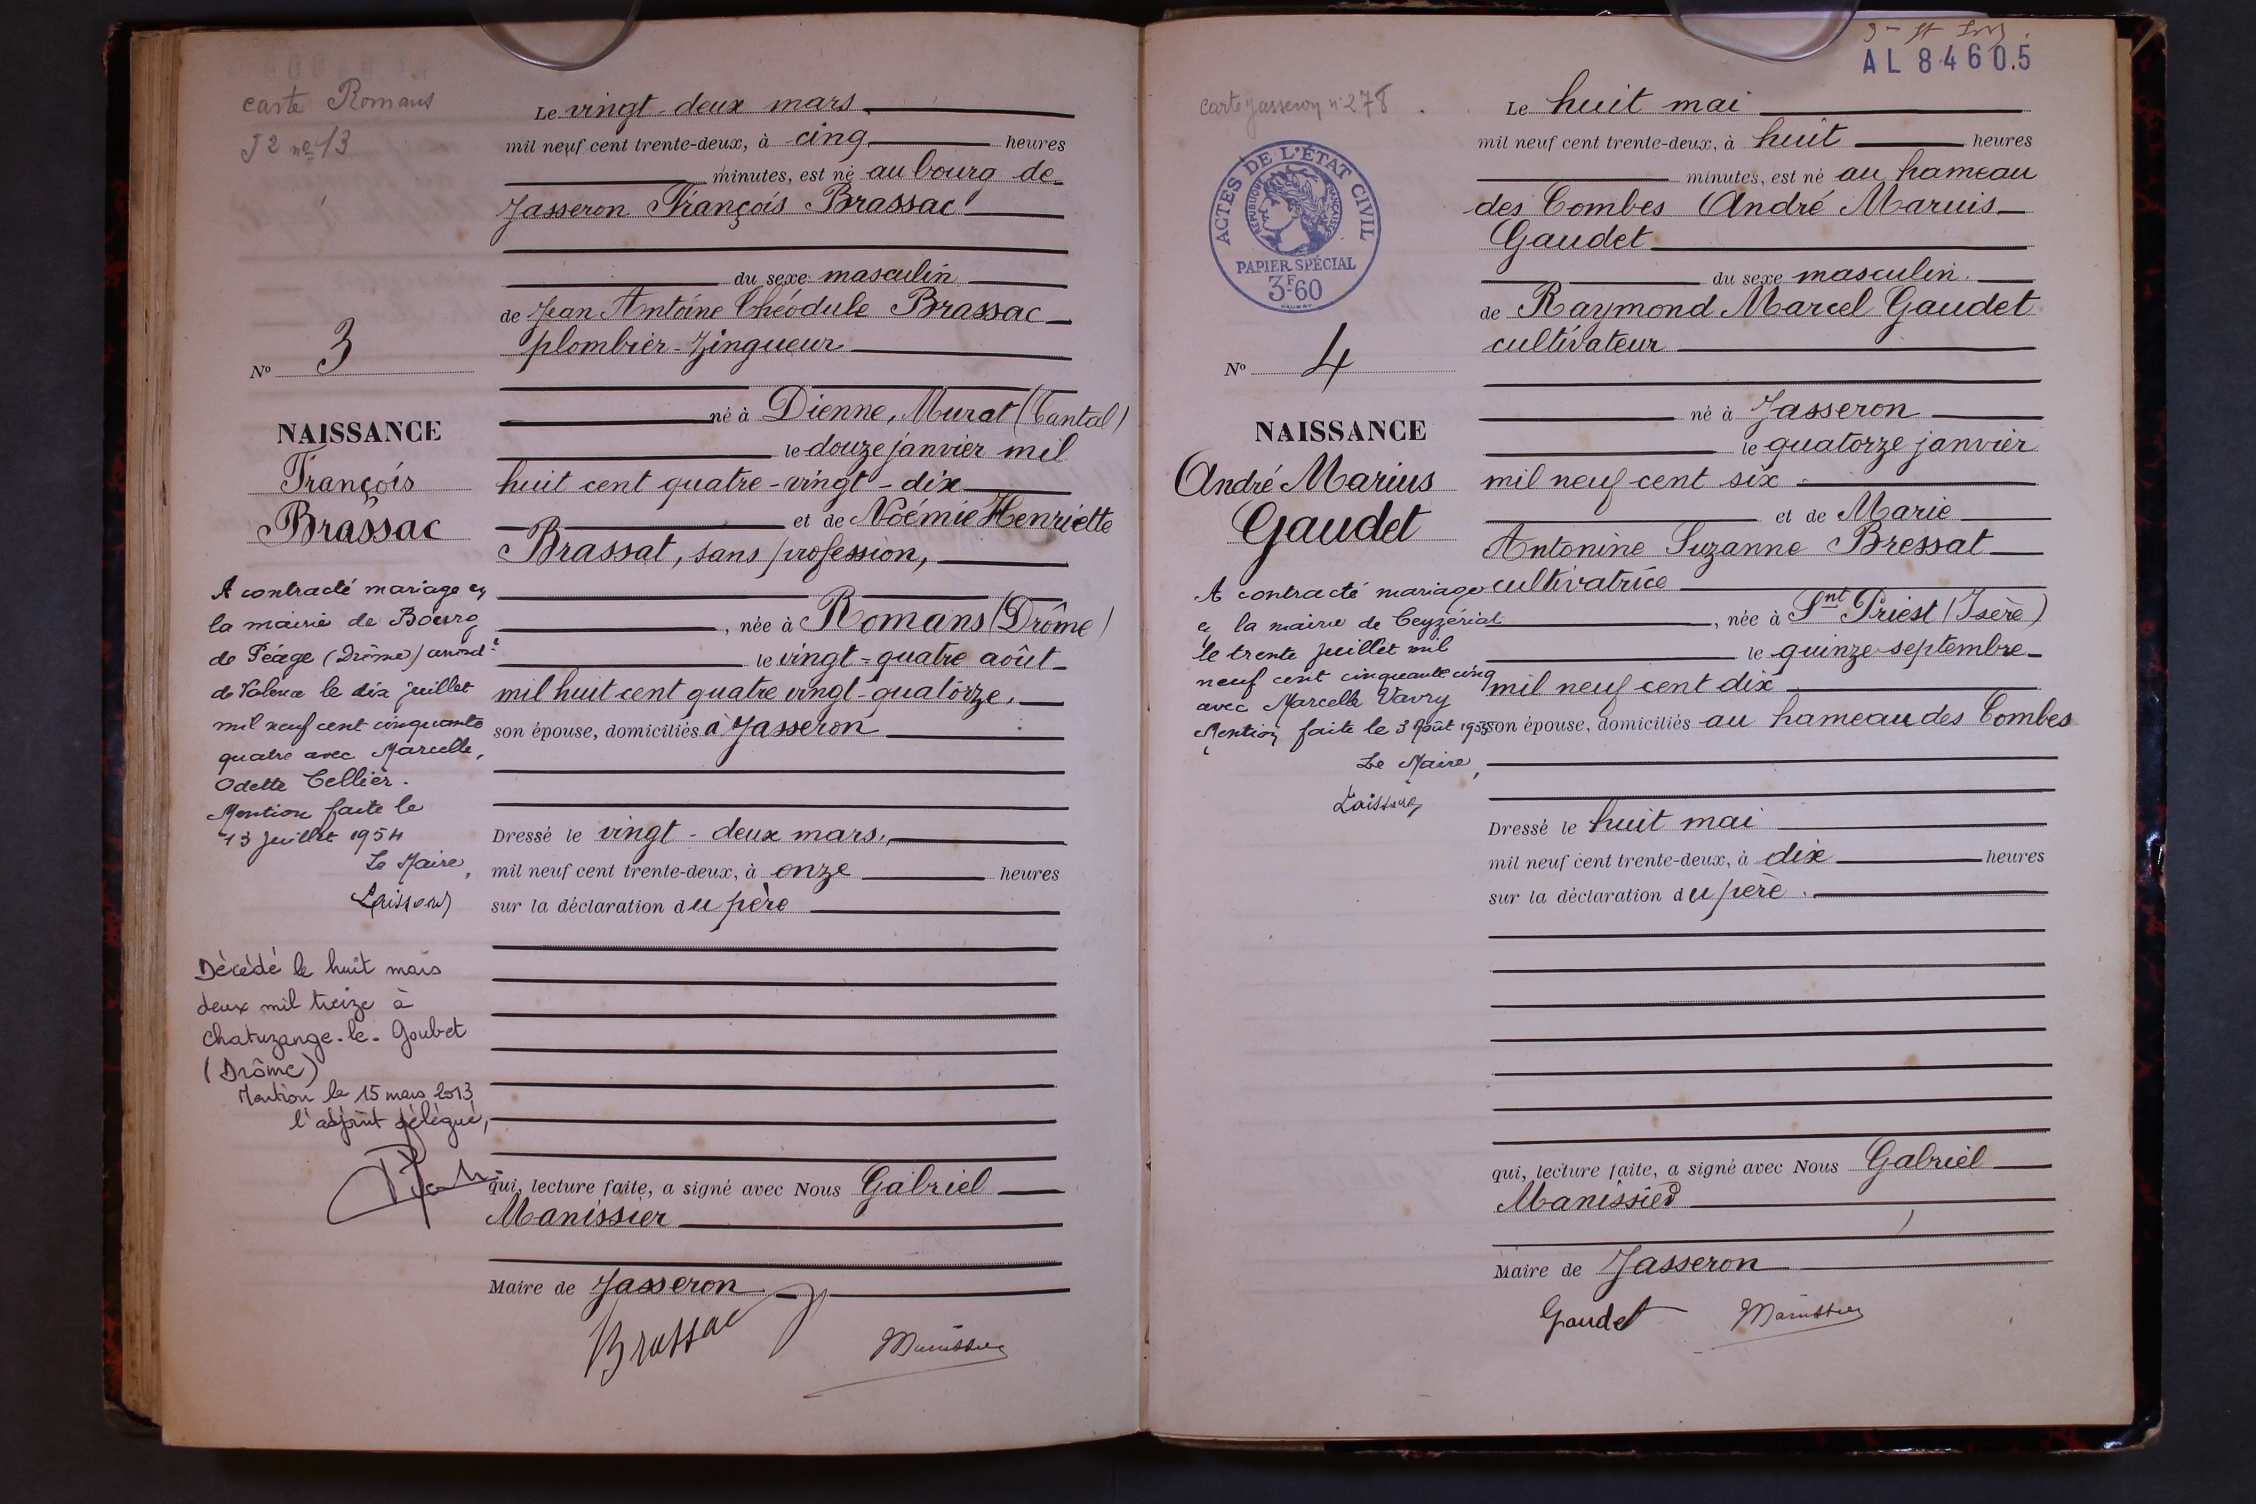 carte Romans
J2 nº 13
Nº 3
NAISSANCE
François
Brassac
A contracté mariage en
la mairie de Bourg
de Péage (Drôme) arrondt
de Valence le dix juillet
mil neuf cent cinquante
quatre avec Marcelle,
Odette Tellier.
Mention faite le
13 Juillet 1954
Le Maire,
Décédé le huit mars
deux mil treize à
Chatuzange-le-Goubet
(Drôme)
Mention le 15 mars 2013
l'adjoint délégué,
Le vingt-deux mars
mil neuf cent trente-deux, à cinq heures
minutes, est né au bourg de
Jasseron François Brassac
du sexe masculin
de Jean Antoine Théodule Brassac
plombier-Zingueur
né à Dienne, Murat (Cantal)
le douze janvier mil
huit cent quatre-vingt-dix
et de Noémie Henriette
Brassat, sans profession,
, née à Romans (Drôme)
le vingt-quatre août
mil huit cent quatre vingt-quatorze,
son épouse, domiciliés à Jasseron
Dressé le vingt-deux mars,
mil neuf cent trente-deux, à onze heures
sur la déclaration du père
qui, lecture faite, a signé avec Nous Gabriel
Manissier
Maire de Jasseron
Brassac
Manissier
AL 84605
Carte Jasseron nº 278
ACTES DE L'ÉTAT CIVIL
RÉPUBLIQUE FRANÇAISE
PAPIER SPÉCIAL
3F60
Nº 4
NAISSANCE
André Marius
Gaudet
A contracté mariage
en la mairie de Ceyzériat
le trente juillet mil
neuf cent cinquante cinq
avec Marcelle Vavry
Mention faite le 3 Août 1955
Le Maire,
Le huit mai
mil neuf cent trente-deux, à huit heures
minutes, est né au hameau
des Combes André Marius
Gaudet
du sexe masculin
de Raymond Marcel Gaudet
cultivateur
né à Jasseron
le quatorze janvier
mil neuf cent six
et de Marie
Antonine Suzanne Bressat
cultivatrice
, née à Snt Priest (Isère)
le quinze septembre
mil neuf cent dix
son épouse, domiciliés au hameau des Combes
Dressé le huit mai
mil neuf cent trente-deux, à dix heures
sur la déclaration du père.
qui, lecture faite, a signé avec Nous Gabriel
Manissier
Maire de Jasseron
Gaudet
Manissier